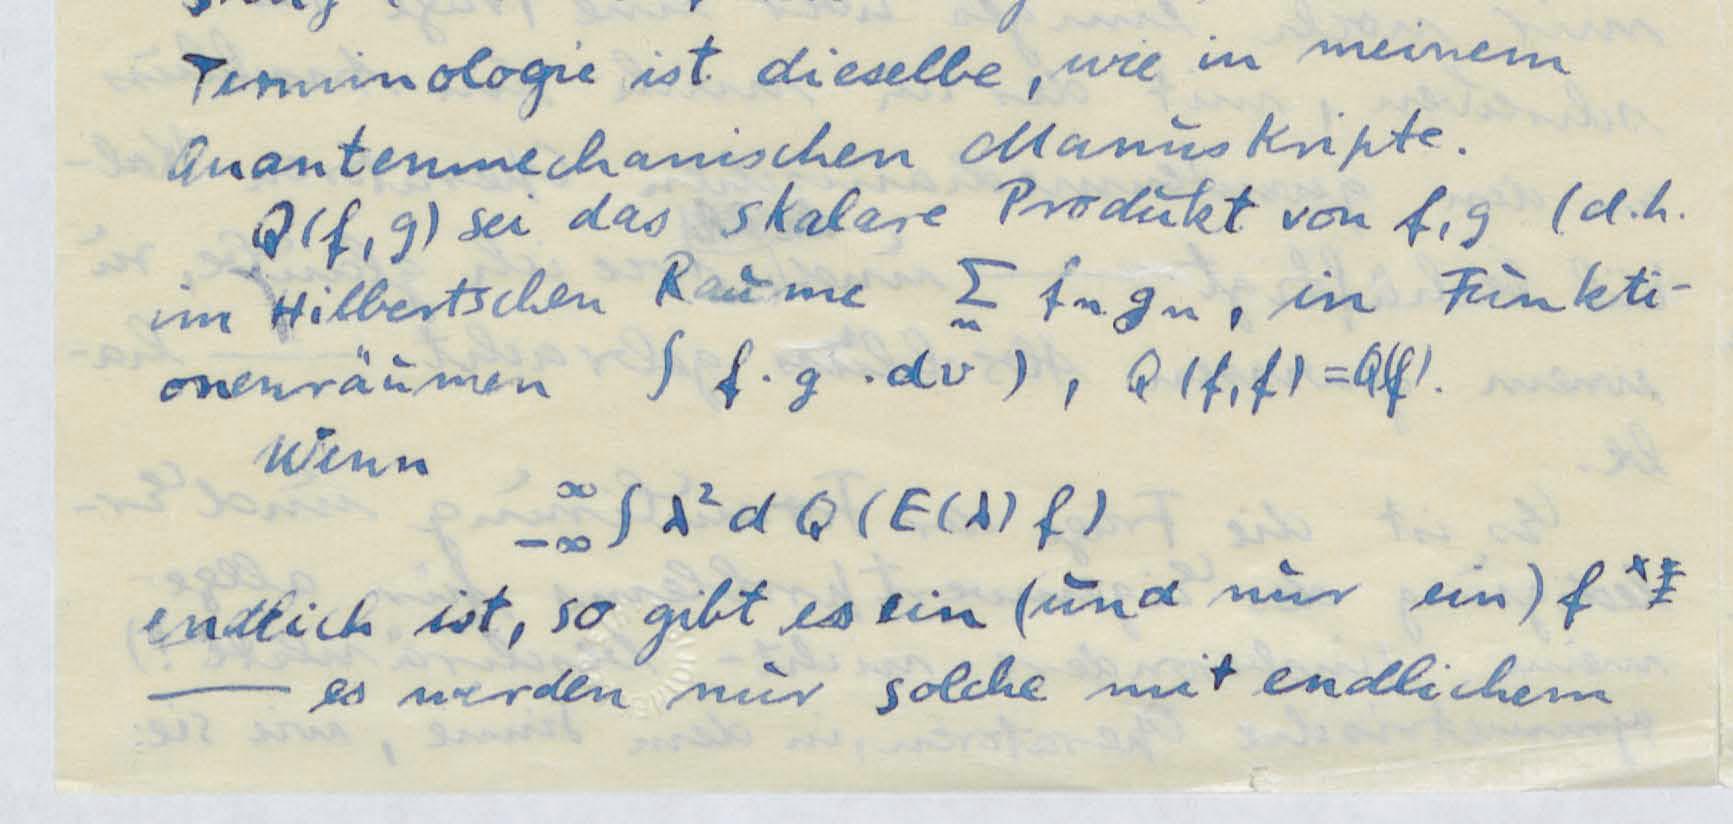 Terminologie ist dieselbe, wie in meinem
Quantenmechanischen Manuskripte.
Q(f,g) sei das skalare Produkt von f,g (d.h.
im Hilbertschen Raume ∑ₙ fₙ gₙ, in Funkti-
onenräumen ∫ f·g·dv), Q(f,f)=Q(f).
Wenn
₋∞^∞∫ λ² d Q(E(λ) f)
endlich ist, so gibt es ein (und nur ein) f
— es werden nur solche mit endlichem